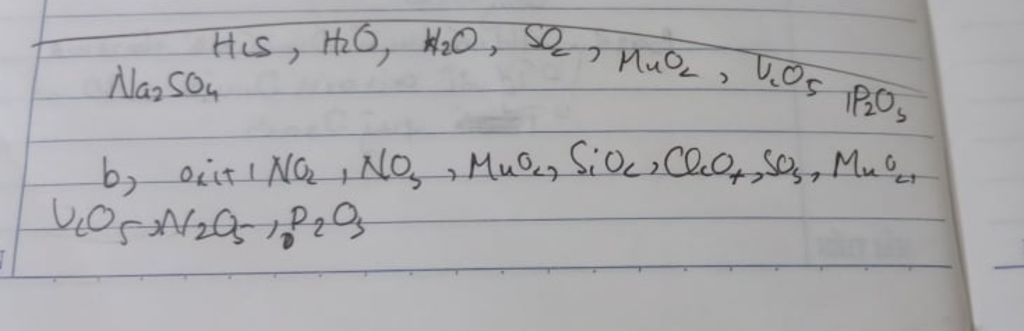 H2S, H2O, K2O, SO2, MnO2, V2O5
Na2SO4 P2O5
b, oxit: NO2, NO3, MnO2, SiO2, Cl2O7, SO3, MnO2,
V2O5, N2O5, P2O3